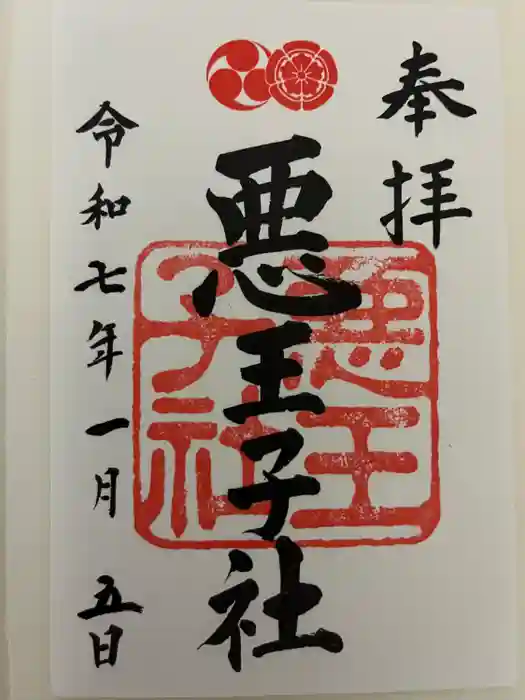 奉拝
悪王子社
悪王
子社
令和七年一月五日